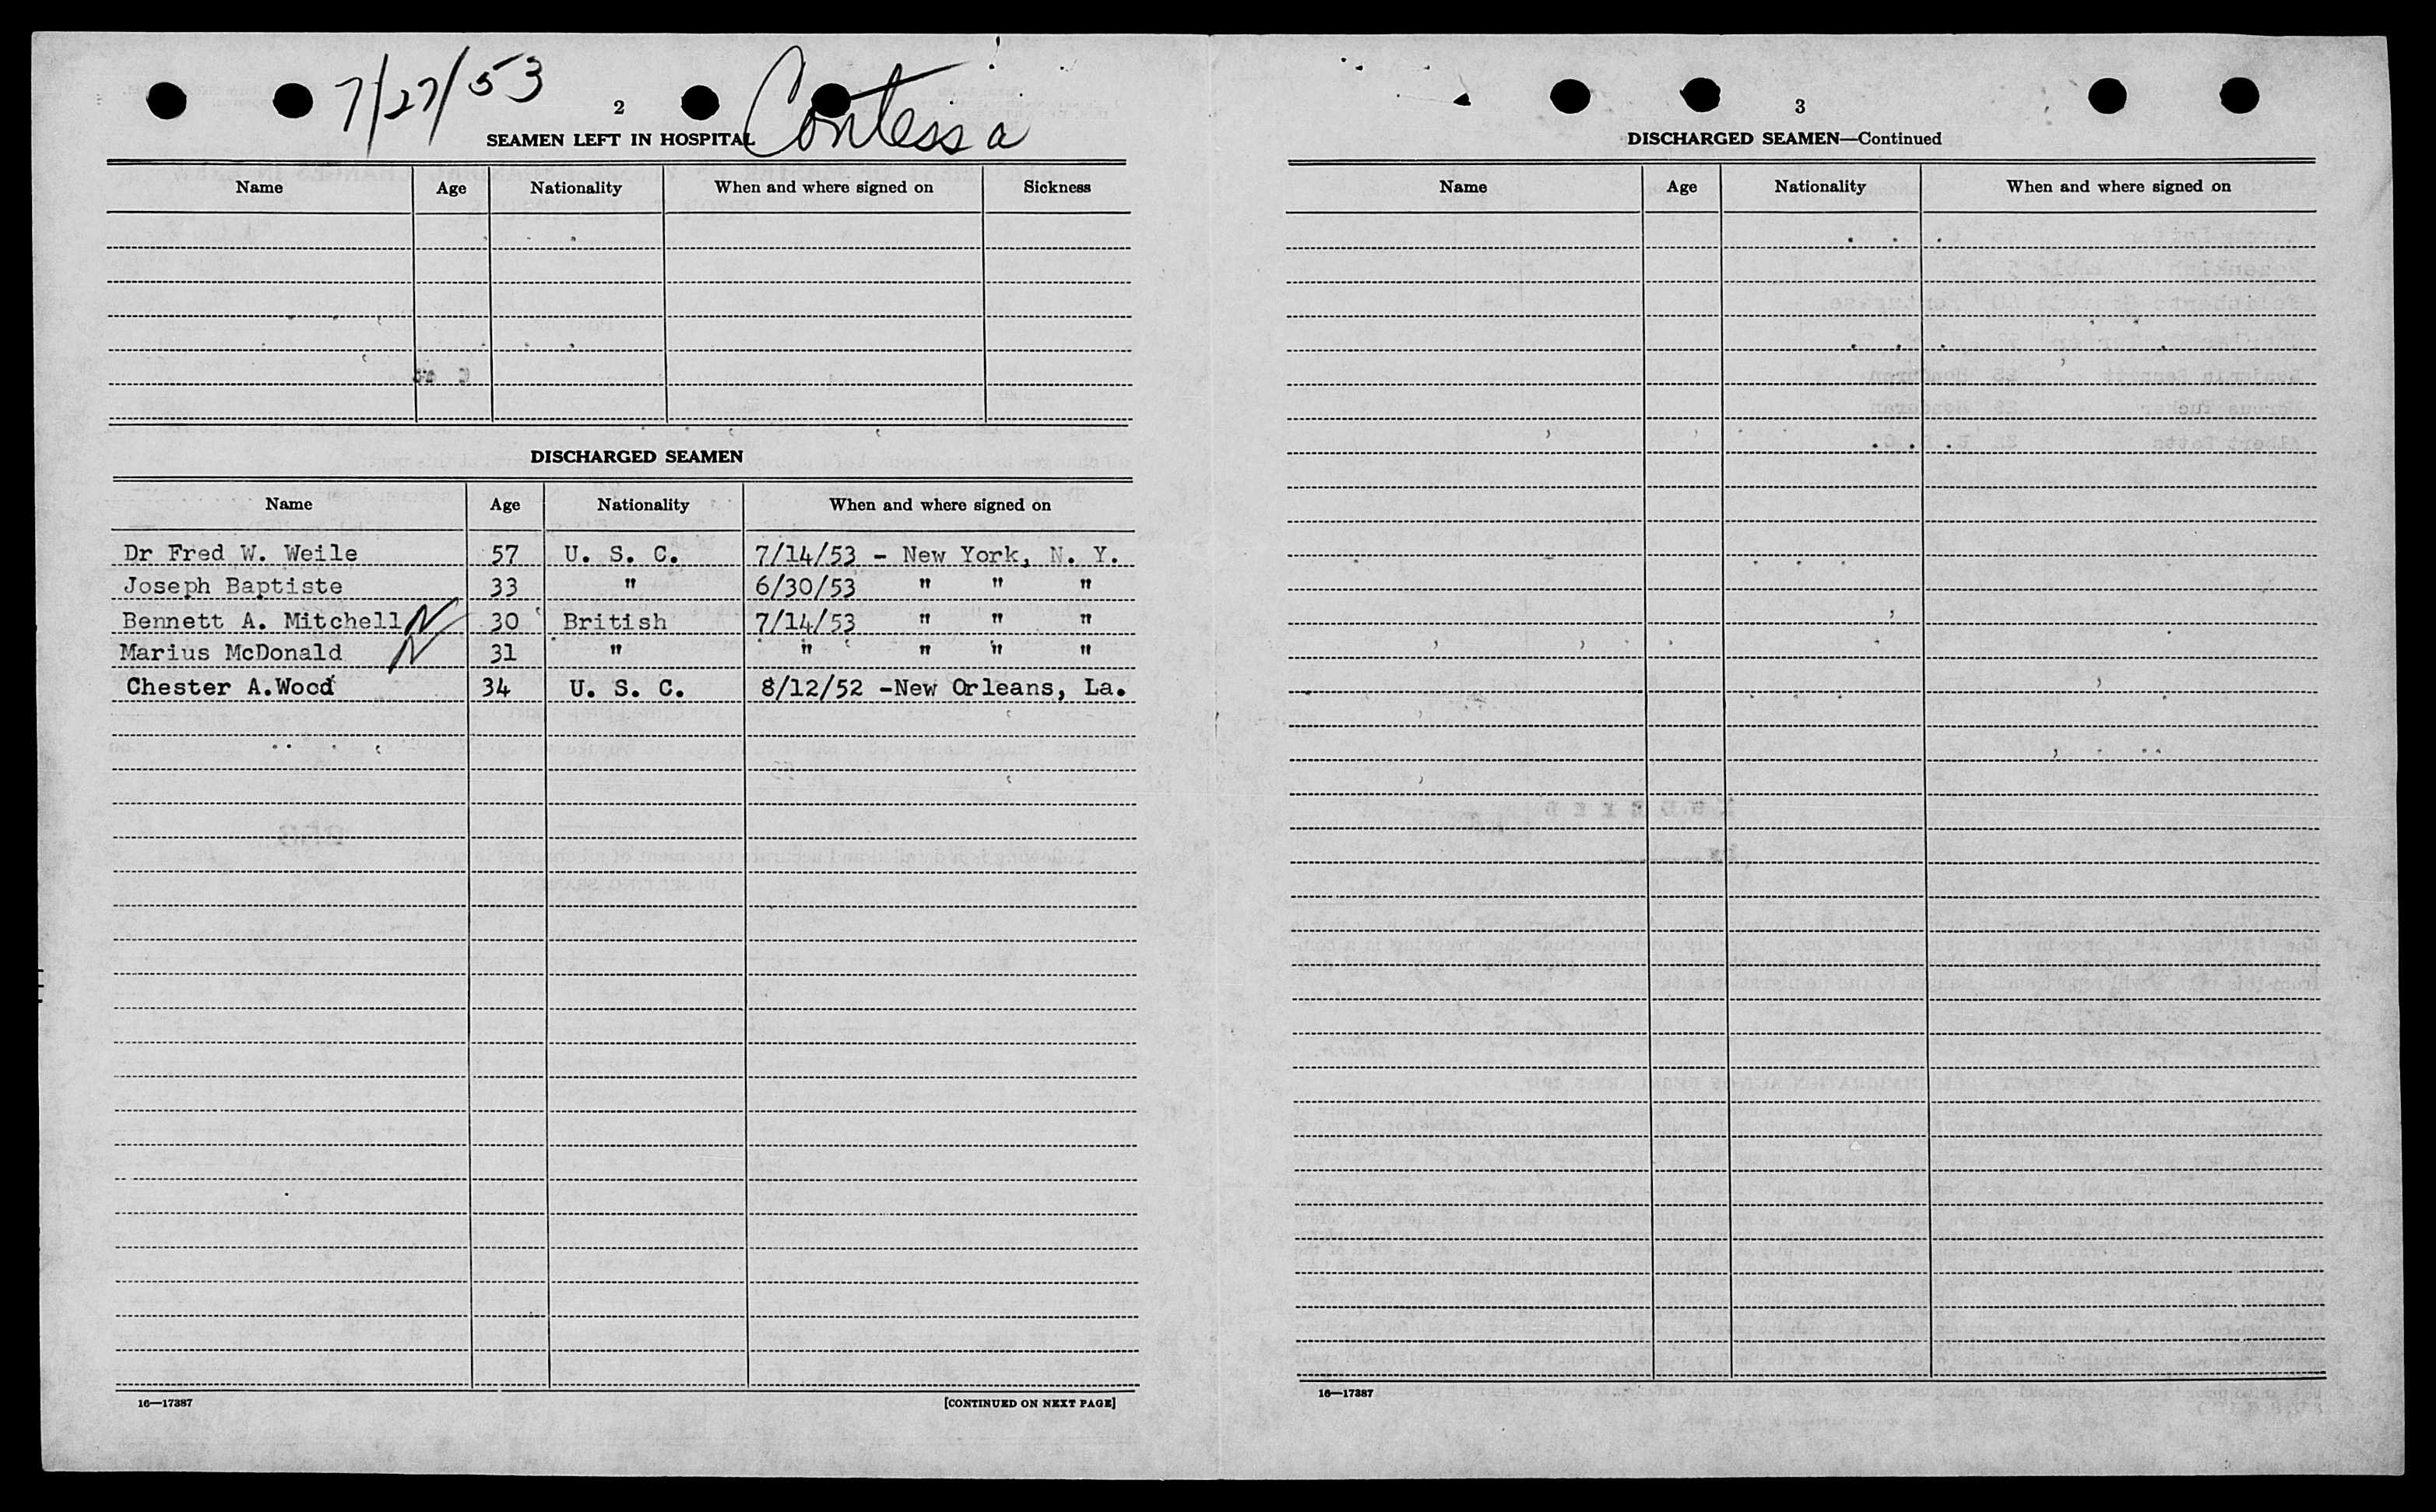 7/27/53
2
Contessa
SEAMEN LEFT IN HOSPITAL
Name Age Nationality When and where signed on Sickness
DISCHARGED SEAMEN
Name Age Nationality When and where signed on
Dr Fred W. Weile 57 U. S. C. 7/14/53 - New York, N. Y.
Joseph Baptiste 33 " 6/30/53 " " "
Bennett A. Mitchell N 30 British 7/14/53 " " "
Marius McDonald N 31 " " " " "
Chester A.Wood 34 U. S. C. 8/12/52 -New Orleans, La.
16—17387
[CONTINUED ON NEXT PAGE]
3
DISCHARGED SEAMEN—Continued
Name Age Nationality When and where signed on
16—17387